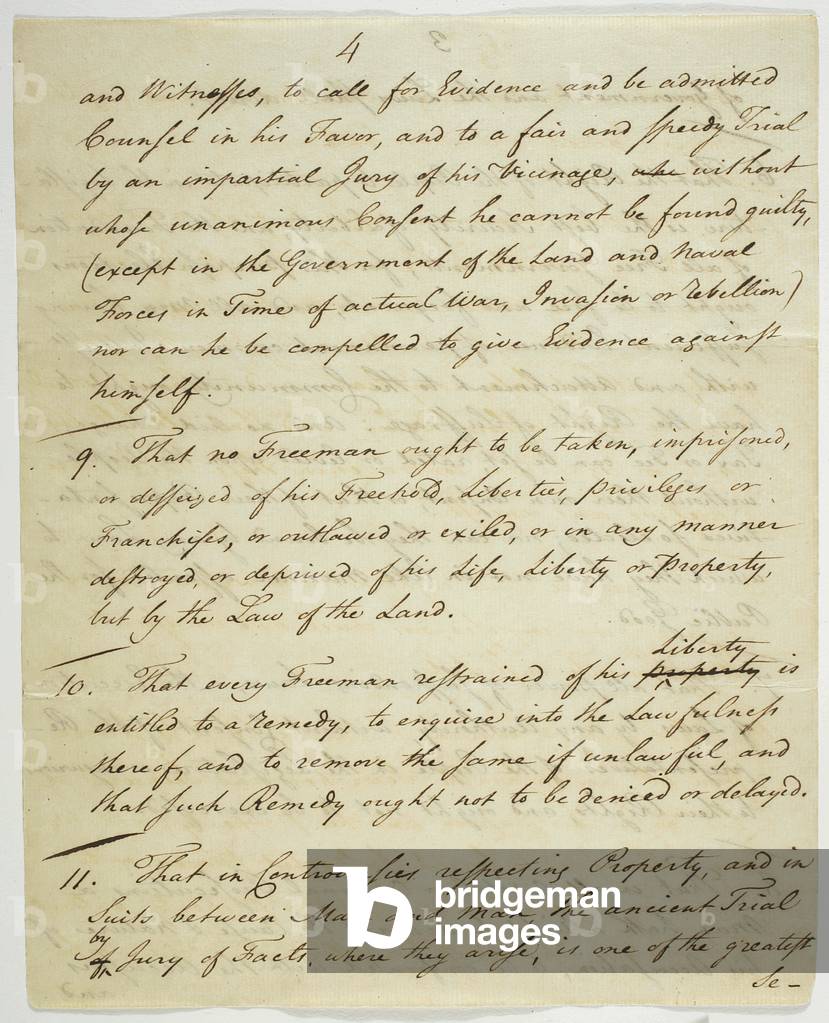 4
and Witnesses, to call for Evidence and be admitted
Counsel in his Favor, and to a fair and speedy Trial
by an impartial Jury of his Vicinage, who without
whose unanimous Consent he cannot be found guilty,
(except in the Government of the Land and Naval
Forces in Time of actual War, Invasion or Rebellion)
nor can he be compelled to give Evidence against
himself.
9. That no Freeman ought to be taken, imprisoned,
or desseized of his Freehold, Liberties, privileges or
Franchises, or outlawed or exiled, or in any manner
destroyed, or deprived of his Life, Liberty or Property,
but by the Law of the Land.
Liberty
10. That every Freeman restrained of his property is
entitled to a remedy, to enquire into the Lawfulness
thereof, and to remove the same if unlawful, and
that such Remedy ought not to be denied or delayed.
11. That in Controversies respecting Property, and in
Suits between Man and Man the ancient Trial
by
of Jury of Facts, where they arise, is one of the greatest
Se-
bridgeman
images